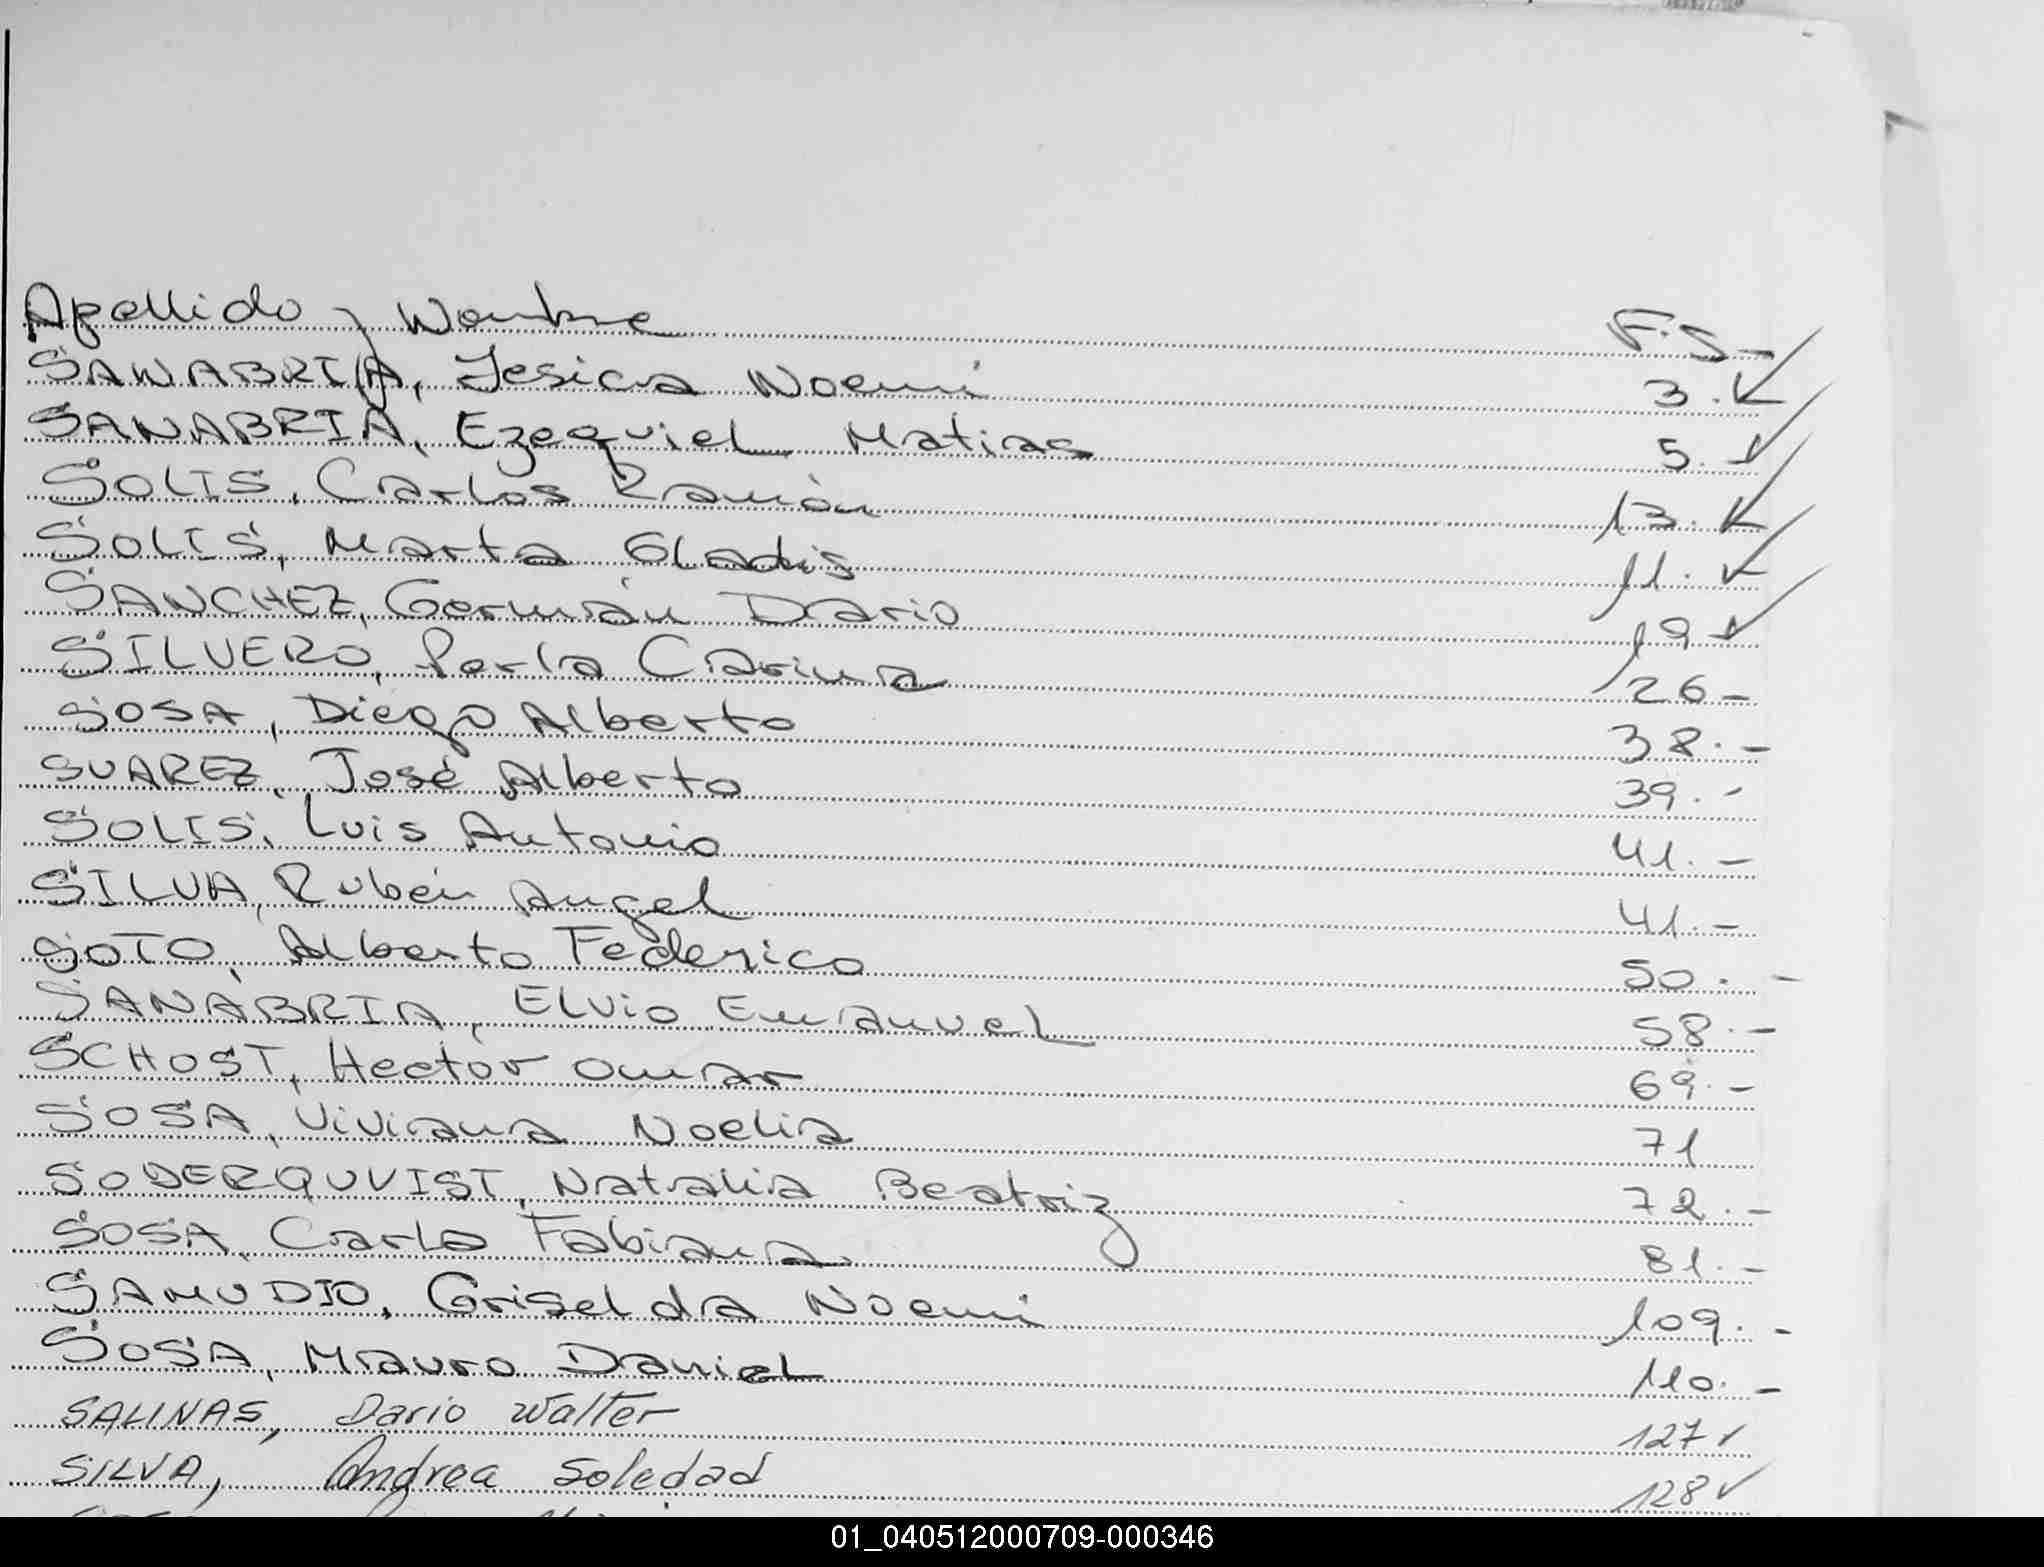 Apellido y Nombre F.S-
SANABRIA, Jesica Noemi 3.
SANABRIA, Ezequiel Matias 5.-
SOLIS, Carlos Ramón 13.
SOLIS, Marta Gladis 11.
SANCHEZ, Germán Dario 19
SILVERO, Perla Carina 26-
SOSA, Diego Alberto 38.-
SUAREZ, José Alberto 39.-
SOLIS, Luis Antonio 41.-
SILVA, Rubén Angel 41.-
SOTO, Alberto Federico 50.-
SANABRIA, Elvio Emanuel 58.-
SCHOST, Hector Omar 69.-
SOSA, Viviana Noelia 71
SODERQUVIST, Natalia Beatriz 72.-
SOSA, Carla Fabiana 81.-
SAMUDIO, Griselda Noemi 109.-
SOSA, Mauro Daniel 110.-
SALINAS, Dario Walter 127✓
SILVA, Andrea Soledad 128✓
01_040512000709-000346